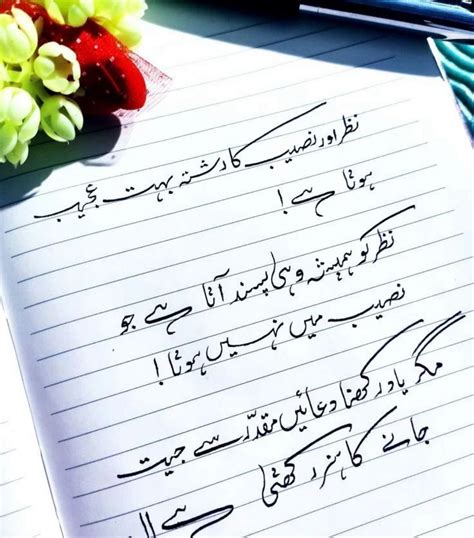 نظر اور نصیب کا رشتہ بہت عجیب
ہوتا ہے!
نظر کو ہمیشہ وہی پسند آتا ہے جو
نصیب میں نہیں ہوتا!
مگر یاد رکھنا دعائیں مقدّر سے جیت
جانے کا ہنر رکھتی ہے